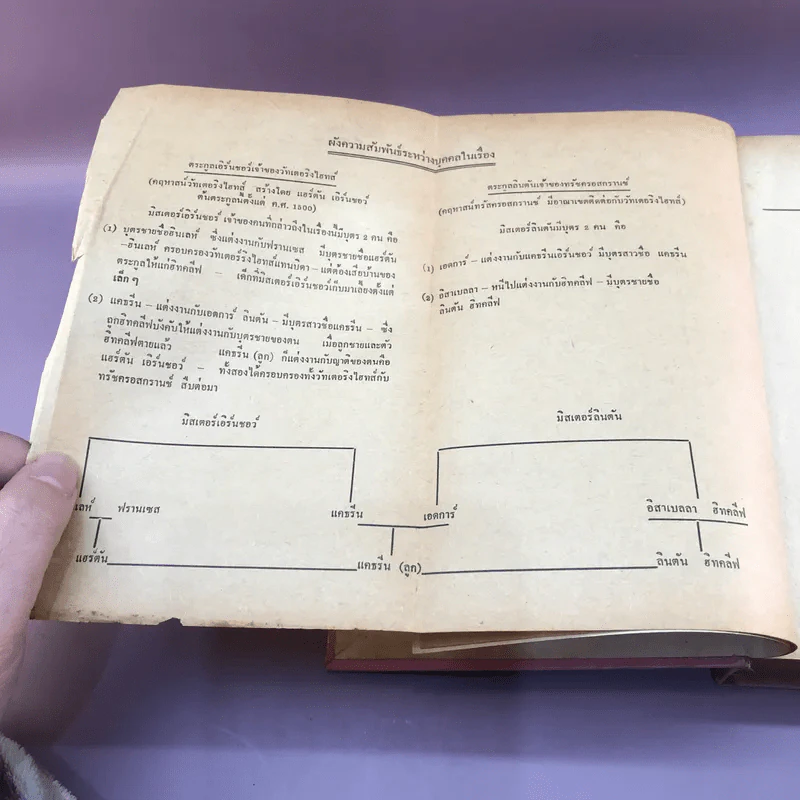 ผังความสัมพันธ์ระหว่างบุคคลในเรื่อง
ตระกูลเอิร์นชอว์เจ้าของวัทเตอริงไฮทส์
(คฤหาสน์วัทเตอริงไฮทส์ สร้างโดย แฮร์ตัน เอิร์นชอว์
ต้นตระกูลนี้ตั้งแต่ ค.ศ. 1500)
มิสเตอร์เอิร์นชอร์ เจ้าของคนที่กล่าวถึงในเรื่องนี้มีบุตร 2 คน คือ
(1) บุตรชายชื่อฮินเลห์ ซึ่งแต่งงานกับฟรานเซส มีบุตรชายชื่อแฮร์ตัน
–ฮินเลห์ ครอบครองวัทเตอร์ริงไฮทส์แทนบิดา – แต่ต้องเสียบ้านของ
ตระกูลให้แก่ฮีทคลีฟ – เด็กที่มิสเตอร์เอิร์นชอว์เก็บมาเลี้ยงตั้งแต่
เล็ก ๆ
(2) แคธรีน – แต่งงานกับเอดการ์ ลินตัน – มีบุตรสาวชื่อแคธรีน – ซึ่ง
ถูกฮีทคลีฟบังคับให้แต่งงานกับบุตรชายของตน เมื่อลูกชายและตัว
ฮีทคลีฟตายแล้ว แคธรีน (ลูก) ก็แต่งงานกับญาติของตนคือ
แฮร์ตัน เอิร์นชอว์ – ทั้งสองได้ครอบครองทั้งวัทเตอริงไฮทส์กับ
ทรัชครอสกรานช์ สืบต่อมา
ตระกูลลินตันเจ้าของทรัชครอสกรานช์
(คฤหาสน์ทรัสครอสกรานช์ มีอาณาเขตติดต่อกับวัทเตอริงไฮทส์)
มิสเตอร์ลินตันมีบุตร 2 คน คือ
(1) เอดการ์ – แต่งงานกับแคธรีนเอิร์นชอร์ มีบุตรสาวชื่อ แคธรีน
(2) อิสาเบลลา – หนีไปแต่งงานกับฮิทคลีฟ – มีบุตรชายชื่อ
ลินตัน ฮิทคลีฟ
มิสเตอร์เอิร์นชอว์ มิสเตอร์ลินตัน
เลห์ ฟรานเซส แคธรีน เอดการ์ อิสาเบลลา ฮิทคลีฟ
แฮร์ตัน แคธรีน (ลูก) ลินตัน ฮิทคลีฟ